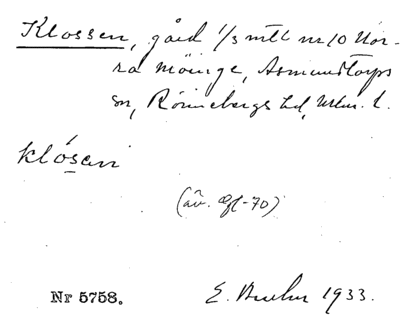 Klossen, gård 1/3 mtl nr 10 Nor-
ra Möinge, Asmundtorps
sn, Rönnebergs hd, Mlm. l.
klósan
(äv. Afl-70)
Nr 5758. E. 1933.